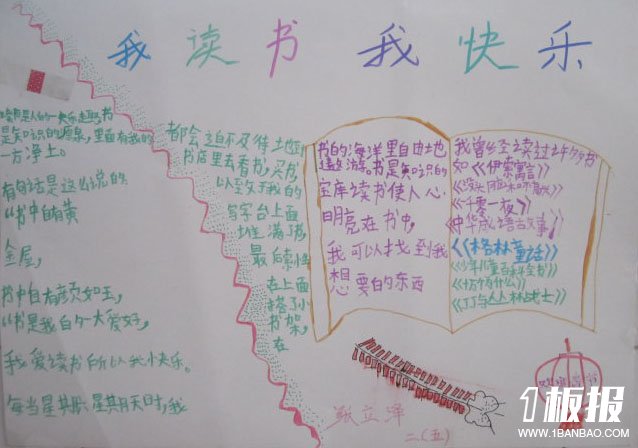 我读书 我快乐
是知识的源泉,里面有我的
一方净土。
有句话是这么说的
“书中自有黄
金屋,
书中自有颜如玉,
“书是我自的一大爱好,
我爱读书所以我快乐。
每当星期六星期天时,我
都会迫不及待地到
书店里去看书,买书
以致于我的
写字台上面
堆满了书,
最后索性
在上面
搭了小
书架,
在
书的海洋里自由地
遨游。书是知识的
宝库读书使人心
明亮在书中,
我可以找到我
想要的东西
我曾经读过许多书
如《伊索寓言》
《一千零一夜》
《中华成语故事》
《格林童话》
《少年儿童百科全书》
《十万个为什么》
《丁丁丛林战士》
张立泽
二(五)
1板报
WWW.1BANBAO.COM